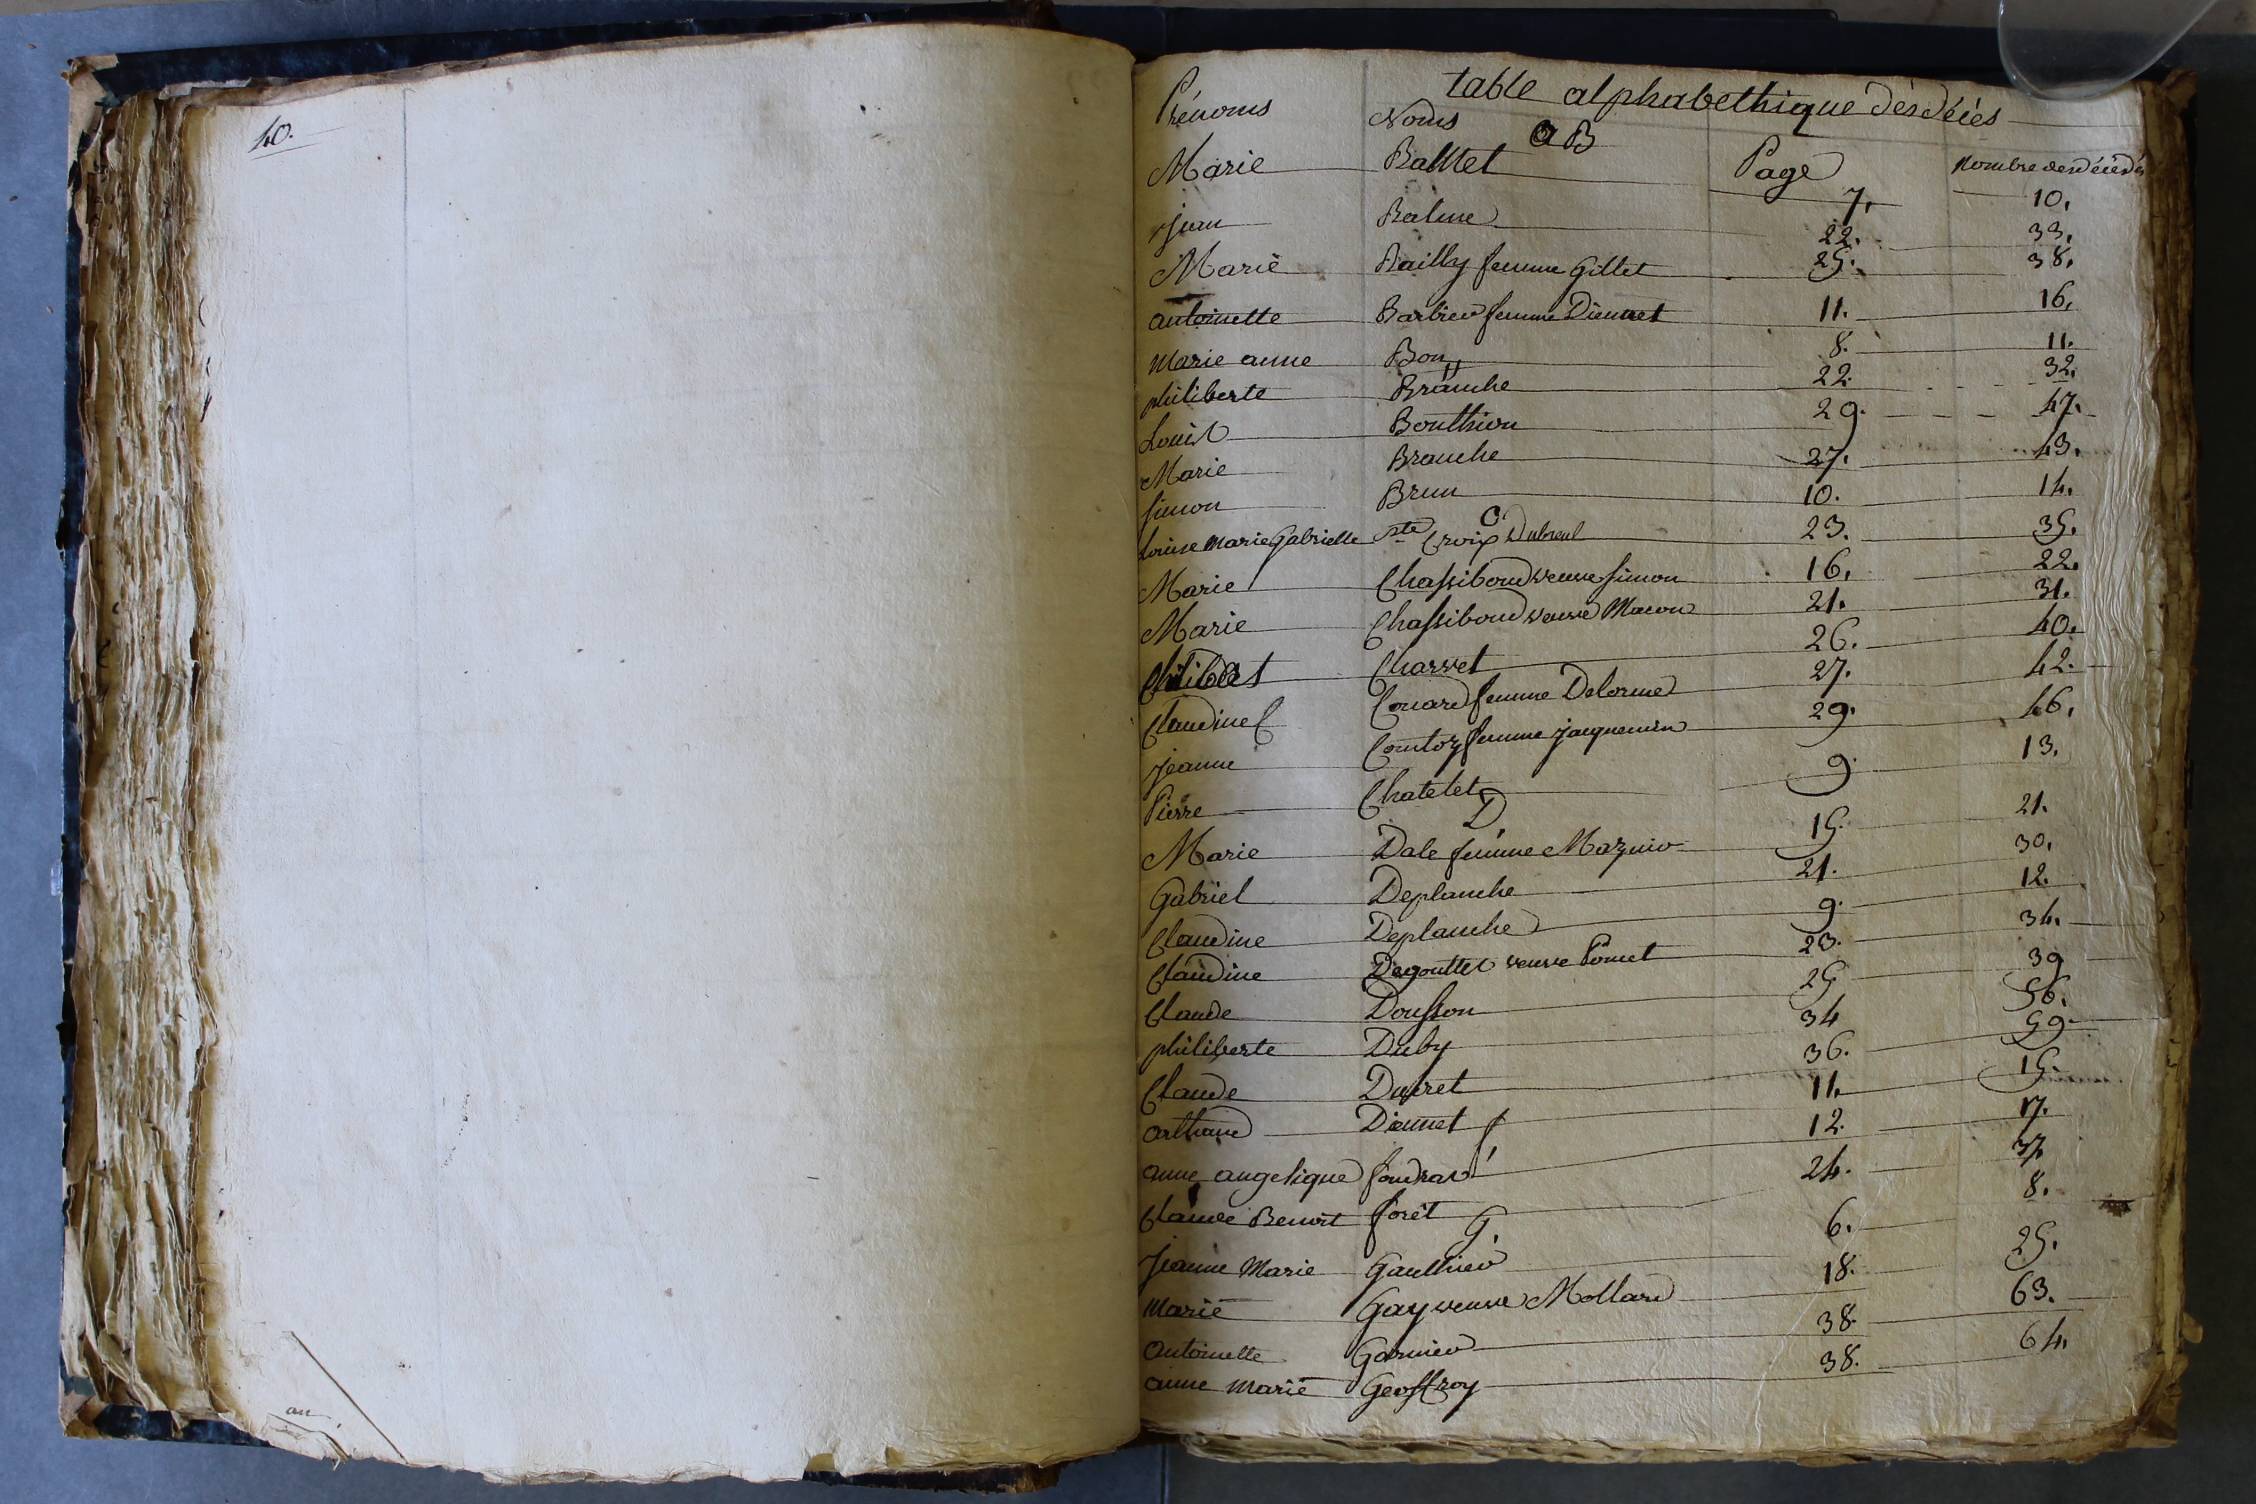 40.
an
table alphabethique des décès
Prénoms Noms Page Nombre des décédés
a B
Marie Balttet 7. 10.
jean Balme 22. 33.
Marie Bailly femme Gillet 25. 38.
antoinette Barbier femme Diennet 11. 16.
Marie anne Bon 8. 11.
philiberte Branche 22. 32.
Louis Bonthion 29. 47.
Marie Branche 27. 43.
simon Brun 10. 14.
C
Louise Marie Gabrielle Ste Croix Dubreul 23. 35.
Marie Chassiboud veuve simon 16. 22.
Marie Chassiboud veuve Macon 21. 31.
Philibert Charvet 26. 40.
Claudine C Couard femme Delorme 27. 42.
jeanne Comtoy femme jacquemin 29. 46.
Pierre Chatelet 9. 13.
D
Marie Dale femme Mazuir 15. 21.
Gabriel Deplanche 21. 30.
Claudine Deplanche 9. 12.
Claudine Degouttes veuve Pomet 23. 34.
Claude Dousson 25 39
philiberte Duby 34 56.
Claude Dupret 36. 59.
arthaud Diennet 11. 15.
f
anne angelique foudras 12. 17.
Claude Benoit forêt 24. 37
G.
Jeanne Marie Gauthier 6. 8.
Marie Gay veuve Mollard 18. 25.
antoinette Garnier 38. 63.
anne Marie Geoffroy 38. 64.